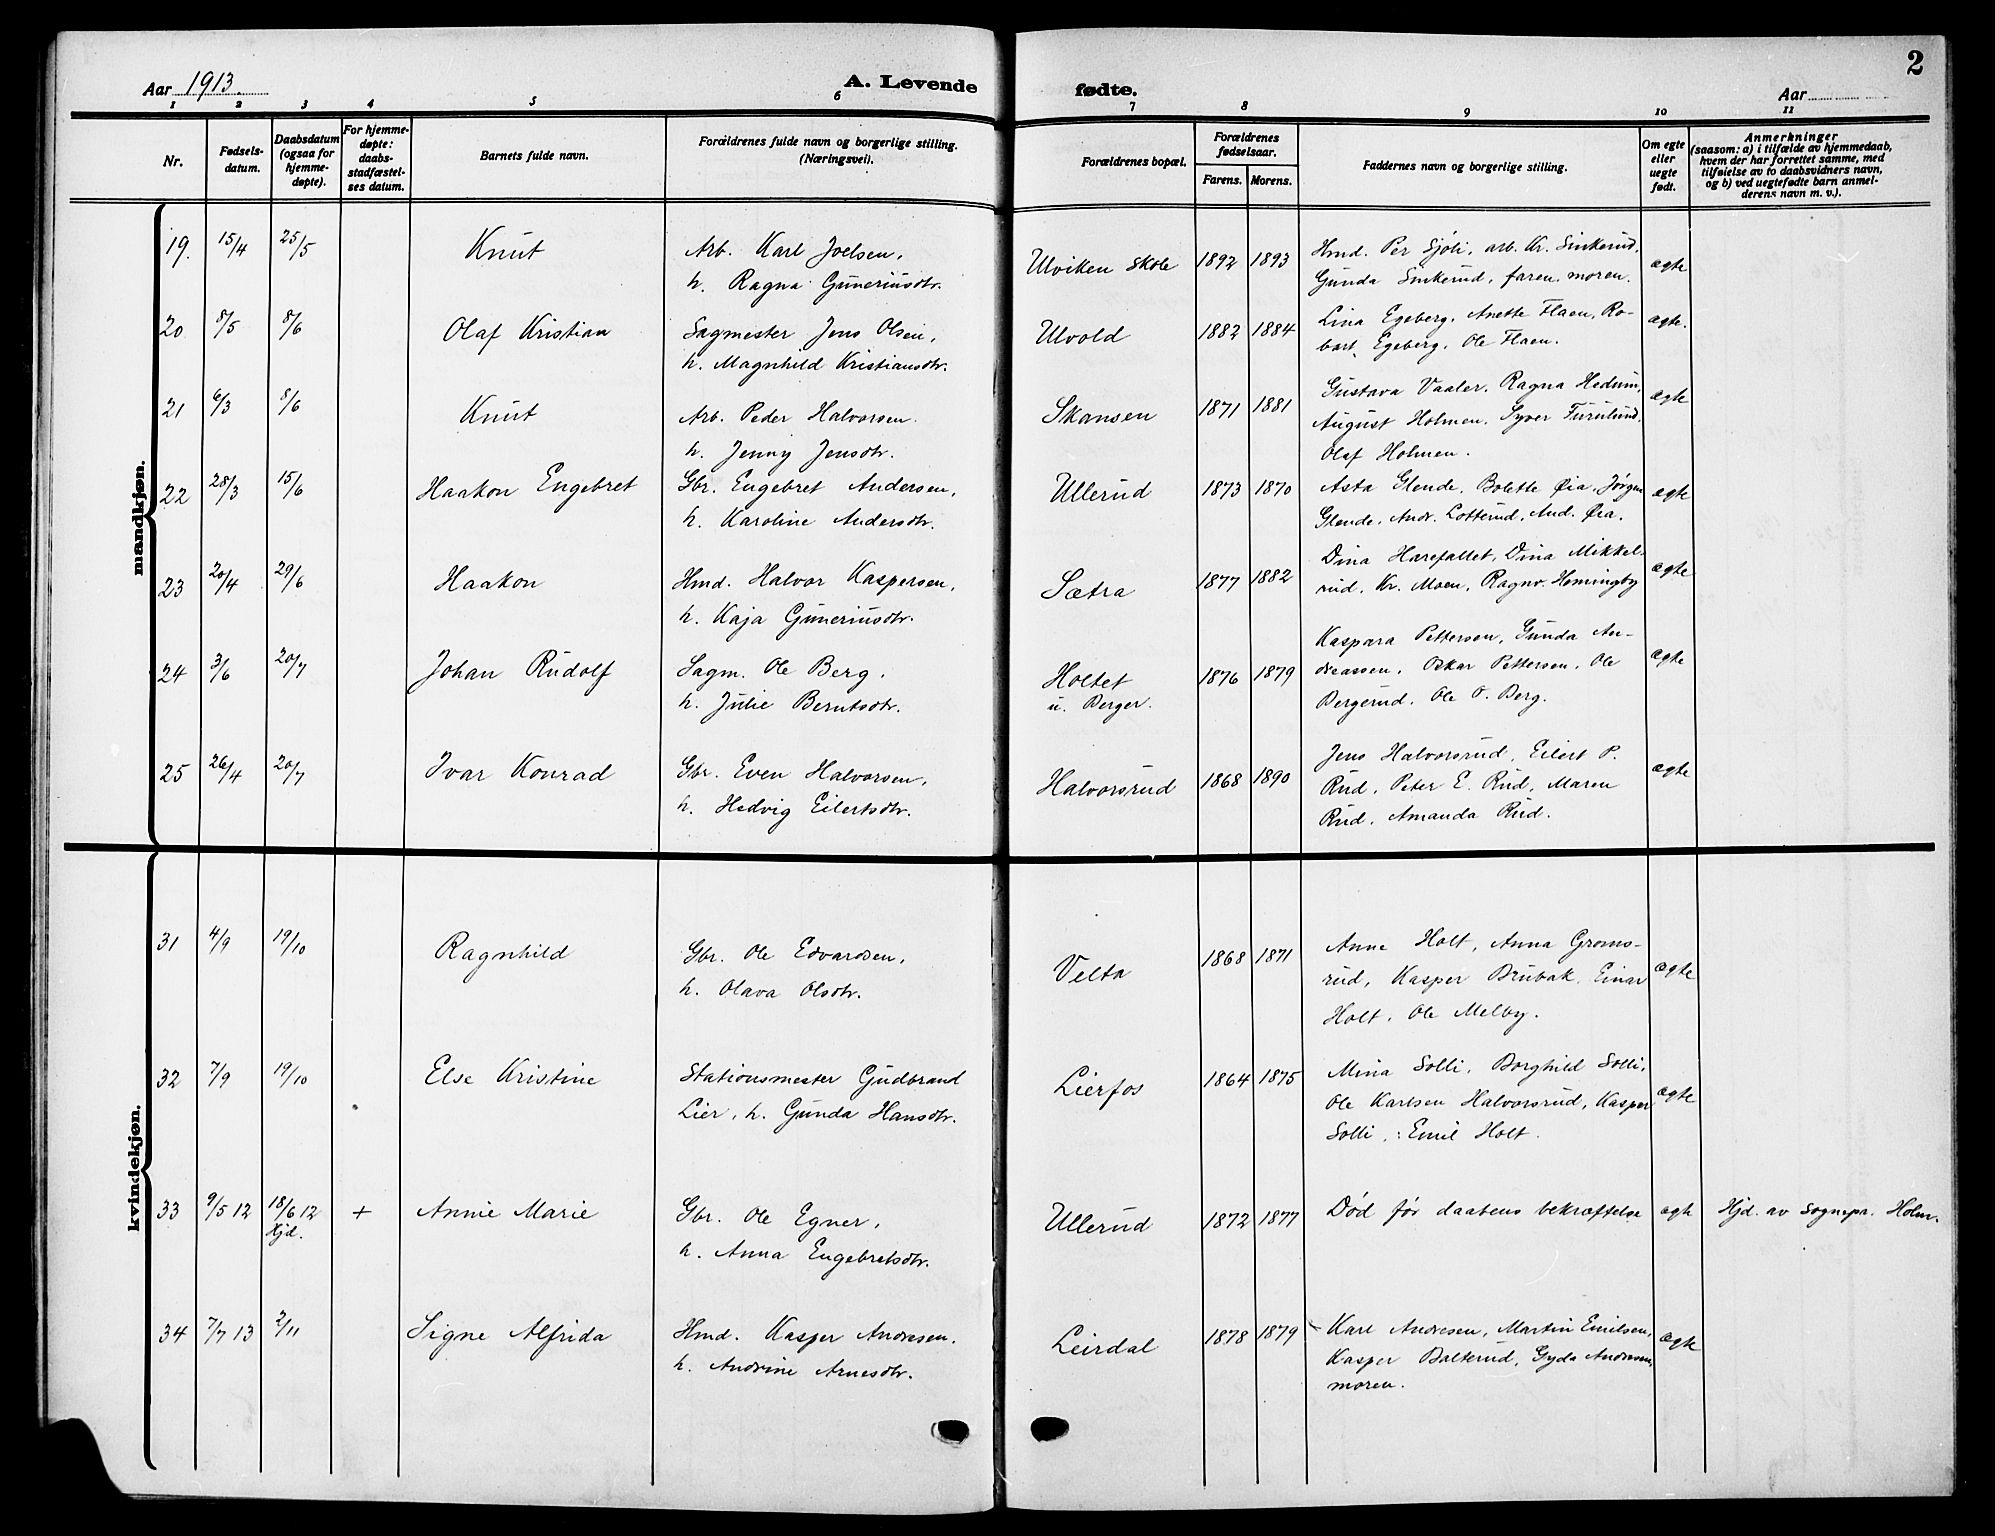 2
Aar 1913.
A. Levende fødte.
Aar
1 2 3 4 5 6 7 8 9 10 11
Nr.
Fødsels-
datum.
Daabsdatum
(ogsaa for
hjemme-
døpte).
For hjemme-
døpte:
daabs-
stadfæstel-
ses datum.
Barnets fulde navn.
Forældrenes fulde navn og borgerlige stilling.
(Næringsvei).
Forældrenes bopæl.
Forældrenes
fødselsaar.
Farens. Morens.
Faddernes navn og borgerlige stilling.
Om egte
eller
uegte
født.
Anmerkninger
(saasom: a) i tilfælde av hjemmedaab,
hvem der har forrettet samme, med
tilføielse av to daabsvidners navn,
og b) ved uegtefødte barn anmel-
derens navn m. v.).
mandkjøn.
19. 15/4 25/5 Knut Arb. Karl Joelsen, Ulviken skole 1892 1893 Hmd. Per Sjøli, arb. Kr. Sinkerud, ægte
h. Ragna Guneriusdtr. Gunda Sinkerud, faren, moren.
20 8/5 8/6 Olaf Kristian Sagmester Jens Olsen, Ulvold 1882 1884 Lina Egeberg, Anette Flaen, Ro- ægte.
h. Magnhild Kristiansdtr. bart Egeberg, Ole Flaen.
21 6/3 8/6 Knut Arb. Peder Halvorsen. Skansen 1871 1881 Gustava Vaaler, Ragna Hedum, ægte
h. Jenny Jensdtr. August Holmen, Syver Furulund,
Olaf Holmen.
22 28/3 15/6 Haakon Engebret Gbr. Engebret Andersen, Ullerud 1873 1870 Asta Glende, Bolette Øia, Jørgen ægte
h. Karoline Andersdtr. Glende, Andr. Lotterud, And. Øia.
23 20/4 29/6 Haakon Hmd. Halvor Kaspersen, Sætra 1877 1882 Dina Harefallet, Dina Mikkel- ægte
h. Kaja Guneriusdtr. rud, Kr. Moen, Ragnv. Hemingby
24 3/6 20/7 Johan Rudolf Sagm. Ole Berg, Holtet 1876 1879 Kaspara Pettersen, Gunda An- ægte
h. Julie Berntsdtr. u. Berger. dreassen, Oskar Pettersen, Ole
Bergerud, Ole O. Berg.
25 26/4 20/7 Ivar Konrad Gbr. Even Halvorsen, Halvorsrud 1868 1890 Jens Halvorsrud, Eilert P. ægte
h. Hedvig Eilertsdtr. Rud, Peter E. Rud, Maren
Rud, Amanda Rud.
kvindekjøn.
31 4/9 19/10 Ragnhild Gbr. Ole Edvardsen, Velta 1868 1871 Anne Holt, Anna Groms- ægte
h. Olava Olsdtr. rud, Kasper Brubak, Einar
Holt, Ole Melby.
32 7/9 19/10 Else Kristine Stationsmester Gudbrand Lierfos 1864 1875 Mina Solli, Borghild Solli, ægte
Lier, h. Gunda Hansdtr. Ole Karlsen Halvorsrud, Kasper
Solli, : Emil Holt.
33 9/5 12 18/6 12 + Annie Marie Gbr. Ole Egner, Ullerud 1872 1877 Død før daabens bekræftelse ægte Hjd. av Sognepr. Holm.
Hjd. h. Anna Engebretsdtr.
34 7/7 13 2/11 Signe Alfrida Hmd. Kasper Andresen, Leirdal 1878 1879 Karl Andresen, Martin Emilsen, ægte
h. Andrine Arnesdtr. Kasper Balterud, Gyda Andresen,
moren.